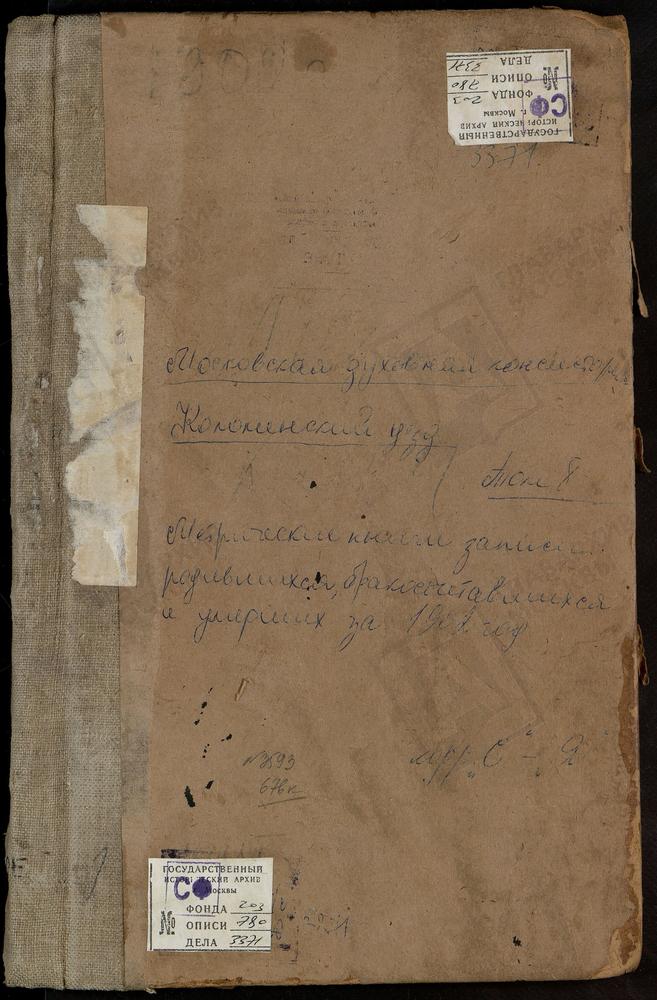 ГОСУДАРСТВЕННЫЙ
ИСТОРИЧЕСКИЙ АРХИВ
г. Москвы
СФ
№
ФОНДА 203
ОПИСИ 780
ДЕЛА 3371
3371
Московская духовная консистория
Коломенский уезд
Том
Метрические книги записи
родившихся, бракосочетавшихся
и умерших за год
№3593
678к
"С" - "Я"
ГОСУДАРСТВЕННЫЙ
ИСТОРИЧЕСКИЙ АРХИВ
г. Москвы
СФ
№
ФОНДА 203
ОПИСИ 780
ДЕЛА 3371